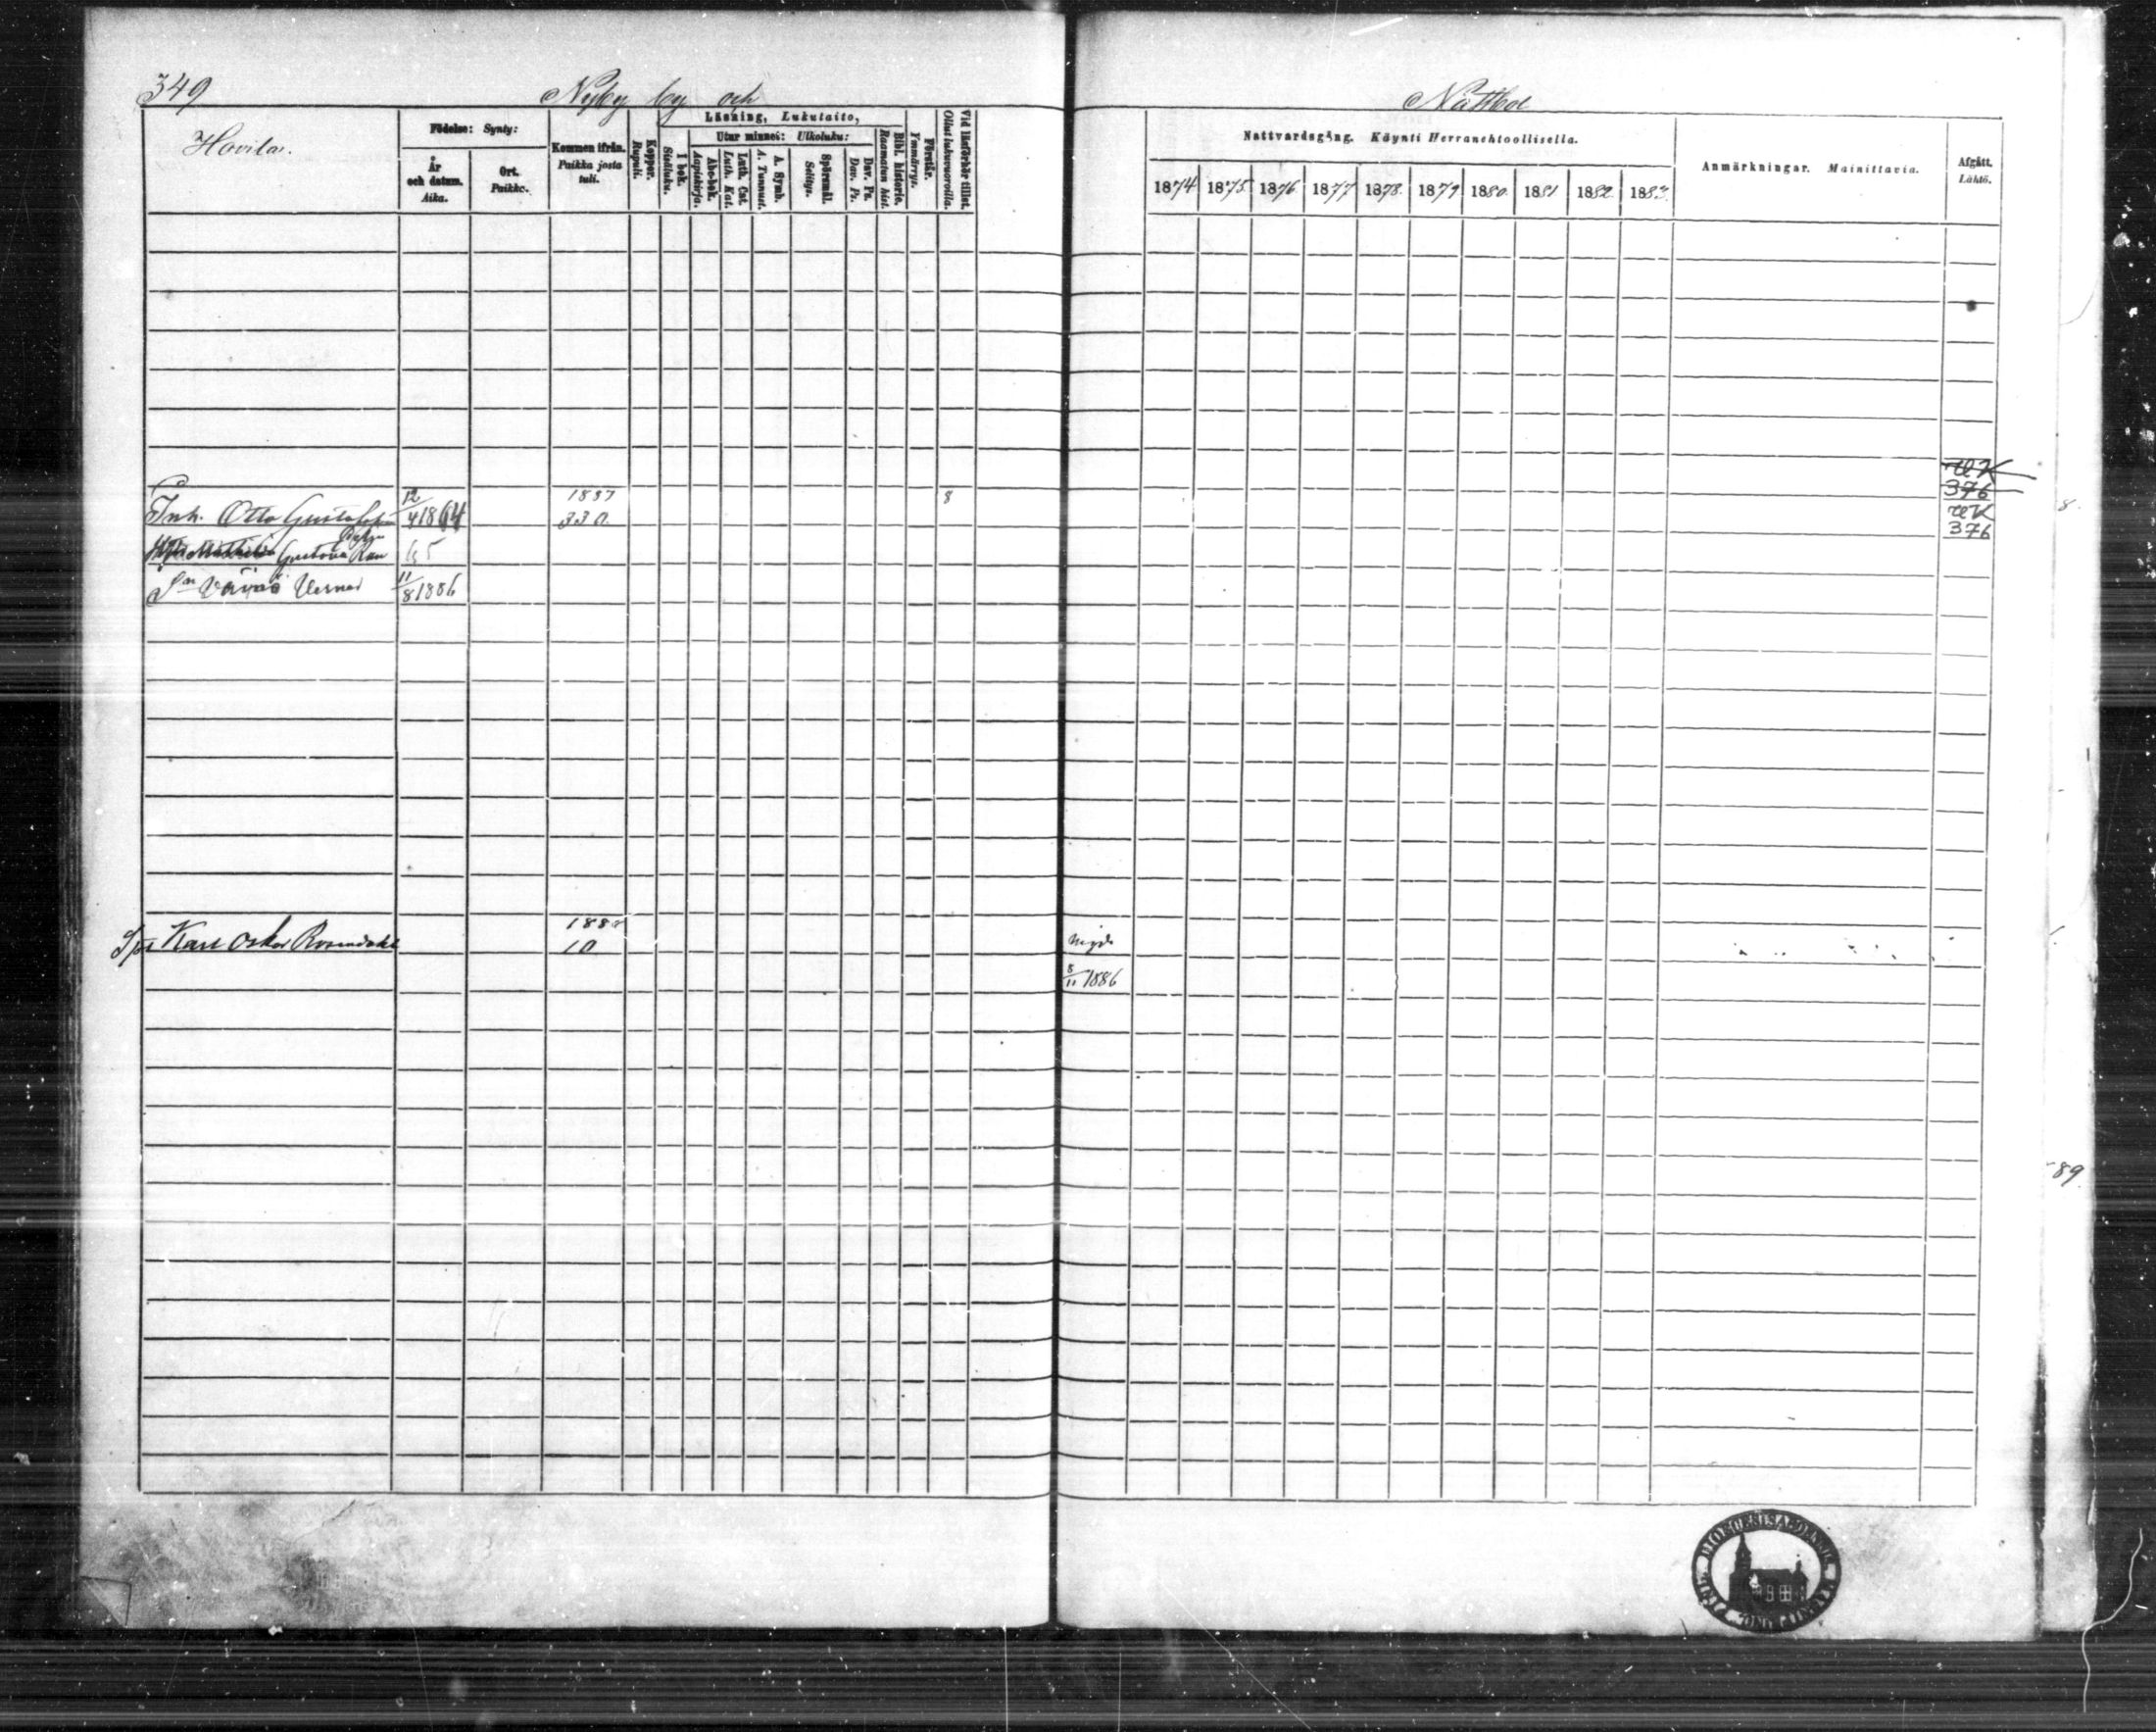 349
Nyby by och
Hovila.
Födelse: Synty:
År och datum. Aika.
Ort. Paikka.
Kommen ifrån. Paikka josta tuli.
Koppor. Rupuli.
Läsning, Lukutaito,
I bok. Sisäluku.
Utur minnet: Ulkoluku:
Abc-bok. Aapiskirja.
Luth. Cat. Luth. Kat.
A. Symb. A. Tunnust.
Spörsmål. Selitys.
Dav. Ps. Dav. Ps.
Bibl. historie. Raamatun hist.
Förstår. Ymmärrys.
Vid läsförhör tillst. Ollut lukuvuoroilla.
Inh. Otto Gustafsson 12/4 1864 1887 330. 8
Gustava 65
Sn Väinö Verner 11/8 1886
Karl Oskar Rosendahl 188
10
Nattvardsgång. Käynti Herranehtoollisella.
1874 1875 1876 1877 1878 1879 1880 1881 1882 1883
Anmärkningar. Mainittavia.
Afgått. Lähtö.
376
376
8
11 1886
8
89